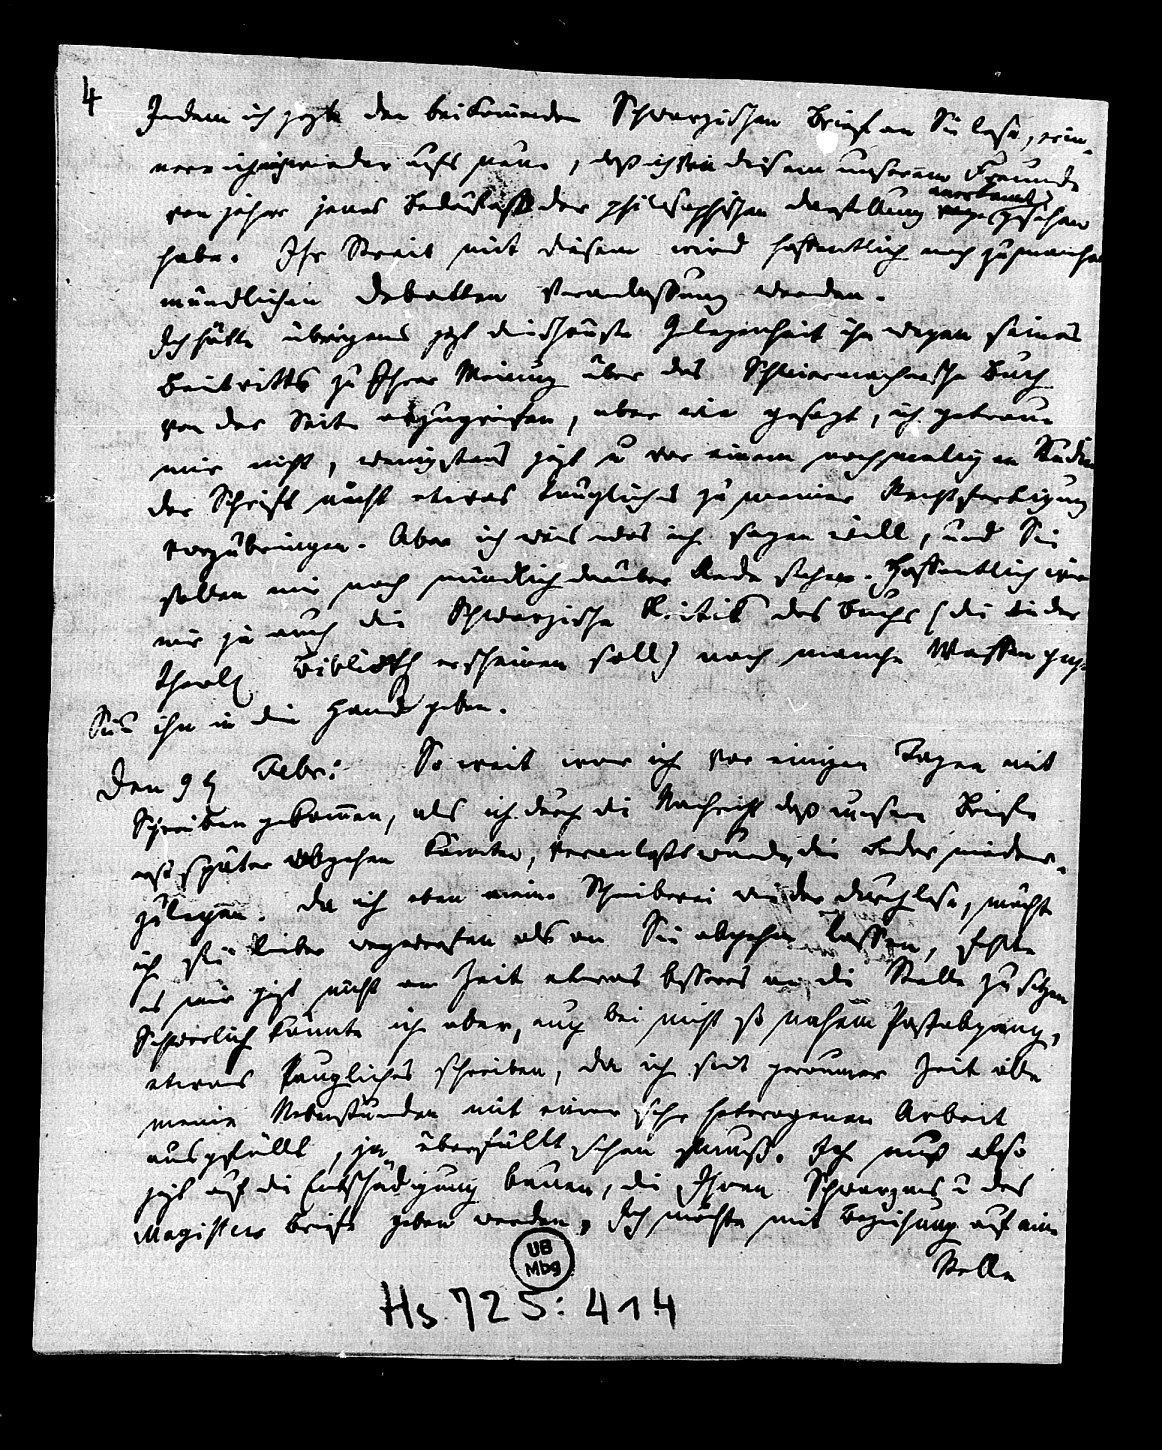 4
Indem ich jezt den beikommenden Schwarzischen Brief an Sie lese, erin-
nere ich mich wieder aufs neue, daß ich von diesem unserem Freunde
von jeher jenes Bedürfniß der philosophischen Darstellung anerkannt gesehen
habe. Ihr Streit mit diesem wird hoffentlich noch zu manchen
mündlichen Debatten Veranlassung werden.
Ich hätte übrigens jezt die schönste Gelegenheit ihn wegen seines
Beitritts zu Ihrer Meinung über das Schleiermachersche Buch
von der Seite anzugreifen, aber wie gesagt, ich getraue
mir nicht, wenigstens jezt u vor einem nochmaligen Studium
der Schrift nicht etwas taugliches zu meiner Rechtfertigung
vorzubringen. Aber ich weis was ich sagen will, und Sie
sollen mir noch mündlich darüber Rede stehen. Hoffentlich wird
mir ja auch die Schwarzische Kritik des Buchs (die in der
theol. Biblioth erscheinen soll) noch manche Waffen gegen
Sie u ihn in die Hand geben.
Den 9t Febr: So weit war ich vor einigen Tagen mit
Schreiben gekommen, als ich durch die Nachricht daß unsere Briefe
erst später abgehen könnten, veranlaßt wurde, die Feder nieder-
zulegen. Da ich eben meine Schreiberei wieder durchlese, möchte
ich sie lieber wegwerfen als an Sie abgehen lassen, fehlte
es mir jezt nicht an Zeit etwas besseres an die Stelle zu setzen
Schwerlich könnte ich aber, auch bei nicht so nahem Postabgang,
etwas Taugliches schreiben, da ich seit geraumer Zeit alle
meine Nebenstunden mit einer sehr heterogenen Arbeit
ausgefüllt, ja überfüllt sehen muß. Ich muß also
jezt auf die Entschädigung bauen, die Ihnen Schwarzens u des
Magisters Briefe geben werden. Ich möchte mit Beziehung auf eine
Stelle
UB
Mbg
Hs. 725: 414